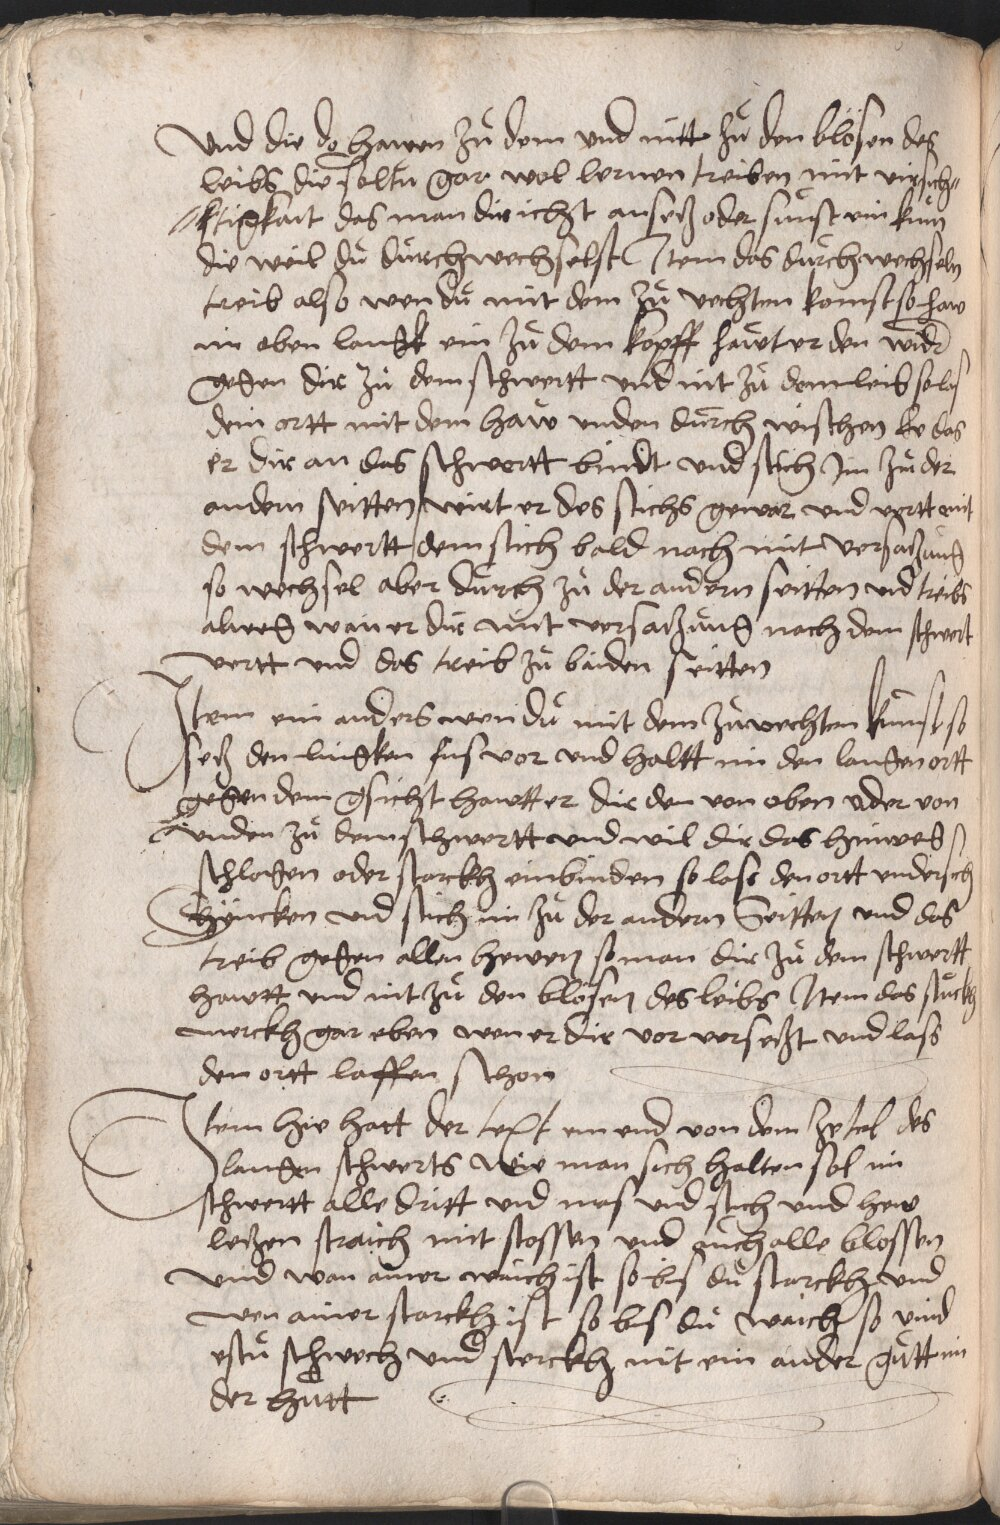 Und die do hawen zů dem und nitt zů den blösen des
leibs die soltu gar wol lernen treiben mit virsich„
„ktigkait das man dir icht ansetz oder sunst ein kům
die weil dů durchwechselst Item das durchwechseln
treib also wen dů mit dem zů vechten komst so haw
im oben langk ein zů dem kopff hawt er den widr
gegen dir zů dem schwertt und nit zů dem leib so las
dein ortt mit dem haw unden durch wischen ee das
er dir an das schwertt bindt und stich Im zů der
andern seitten wirt er des stichs gewar und vertt mit
dem schwertt dem stich bald nach mit versatzung
so wechsel aber durch zů der andern seitten und treibs
alweg wan er dir mit versatzung nach dem schwert
vertt und das treib zů baiden seitten
Item ein anders wen dů mit dem zůvechten kumst so
setz den lingken fus vor und haltt im den langen ortt
gegen dem gsicht hawtt er dir den von oben oder von
unden zů dem schwertt und wil dir das hinweg
schlagen oder starckh einbinden so lass den ortt undersich
syncken und stich im zů der andern Seitten und das
treib gegen allen hewen so man dir zů dem schwertt
hawtt und nit zů den blösen des leibs Item das stuckh
merckh gar eben wen er dir vor versetzt und lass
den ortt laffen schon
Item hie hatt der text ein end von dem zetel des
langen schwerts wie man sich halten sol im
schwertt alle dritt und mas und stich und hew
letzen straich mit stossen und auch alle blossen
und wan ainer waich ist so bis dů starckh und
wen ainer starckh ist so bis dů waich so vind
estů schwech und sterckh mit ein ander gůtt im
der hůtt